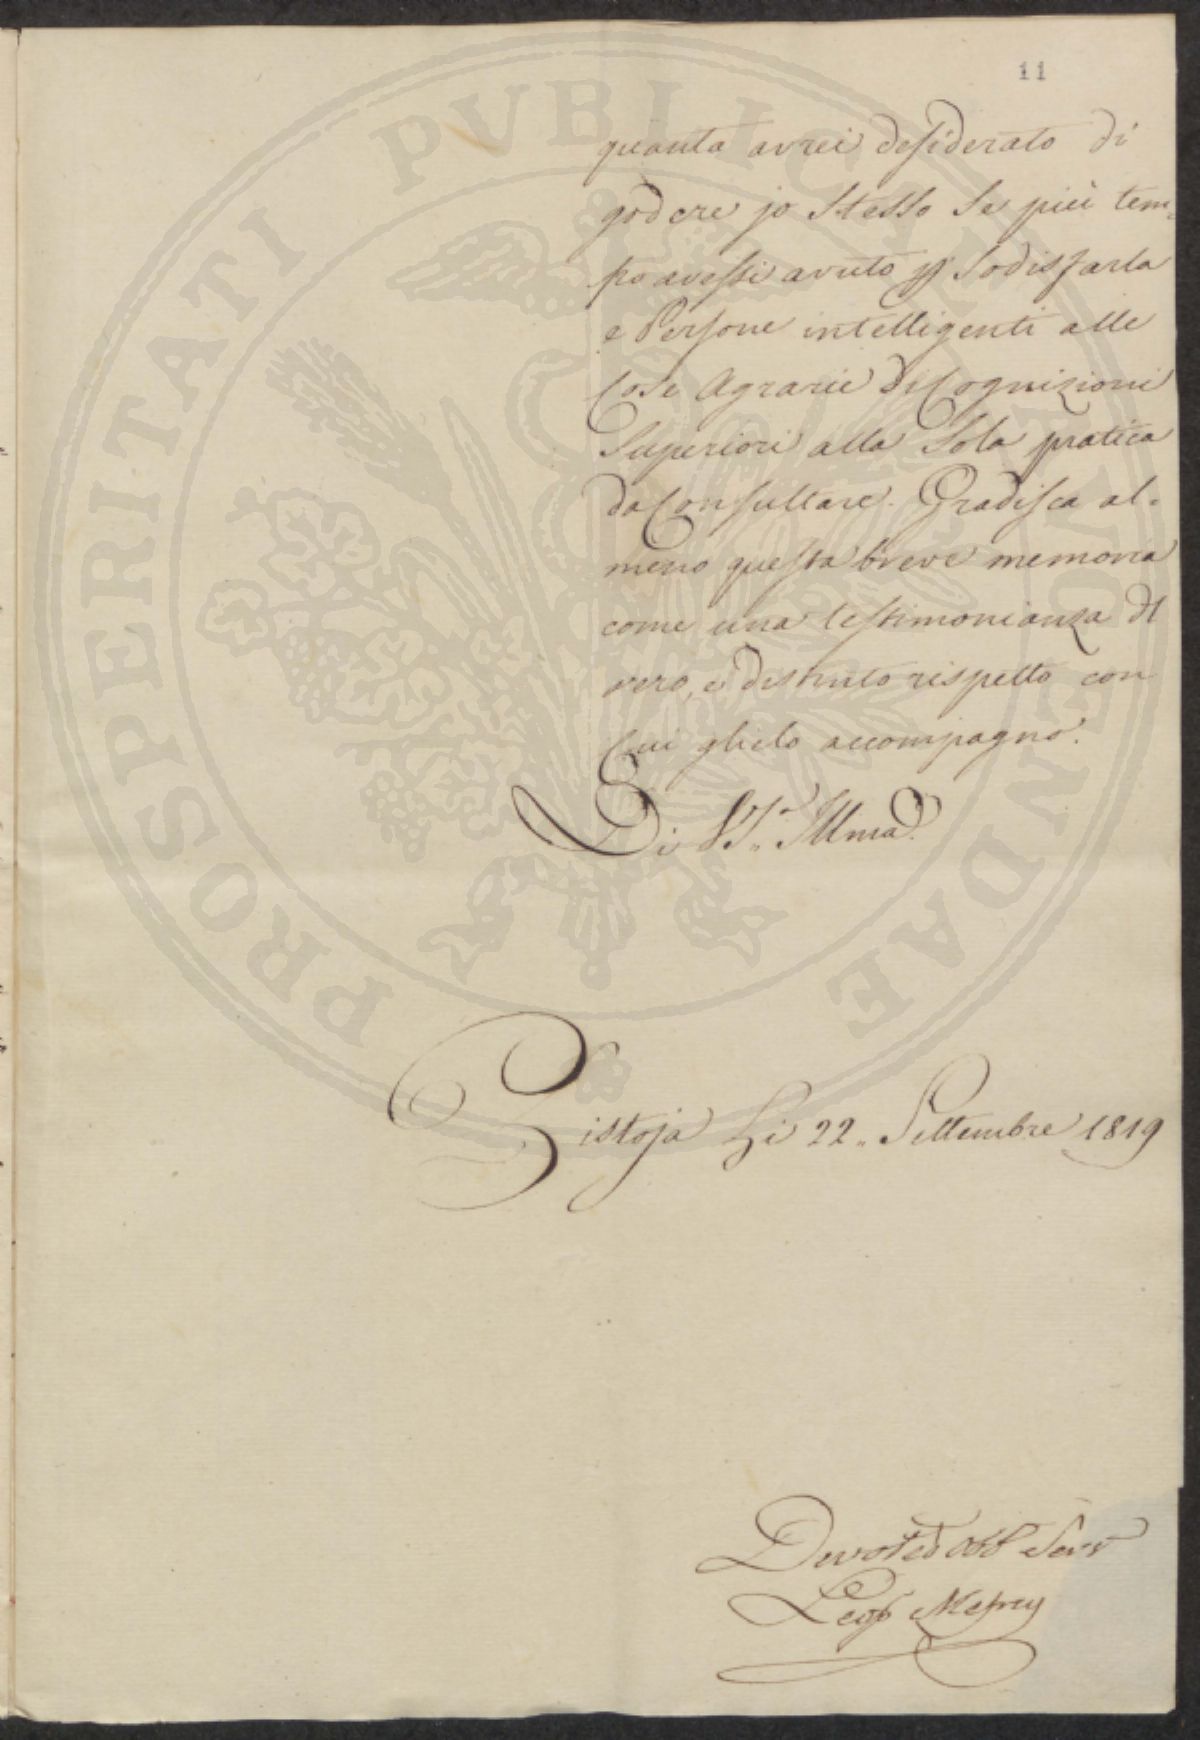 11
quanta avrei desiderato di
godere jo stesso se più tem=
po avessi avuto p sodisfarla
e Persone intelligenti alle
Cose Agrarie di Cognizioni
Superiori alla Sola pratica
da Consultare. Gradisca al=
meno questa breve memoria
come una testimonianza di
vero, e distinto rispetto con
Cui glielo accompagno.
Di V.S. Illma.
Pistoja Li 22. Settembre 1819
Devot ed Obb Serv
Leop
PROSPERITATI PUBLICAE AUGENDAE